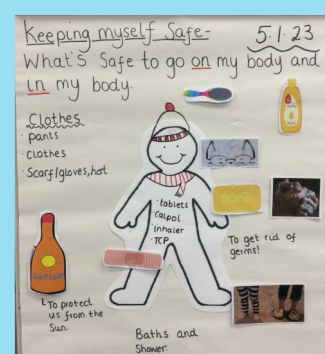 Keeping myself Safe-
5.1.23
What's Safe to go on my body and
in my body.
Clothes
· pants
· clothes
· Scarf/gloves, hat
· tablets
· Calpol
· Inhaler
· TCP
soap
To get rid of
germs!
LOTION
To protect
us from the
Sun.
Baths and
Shower.